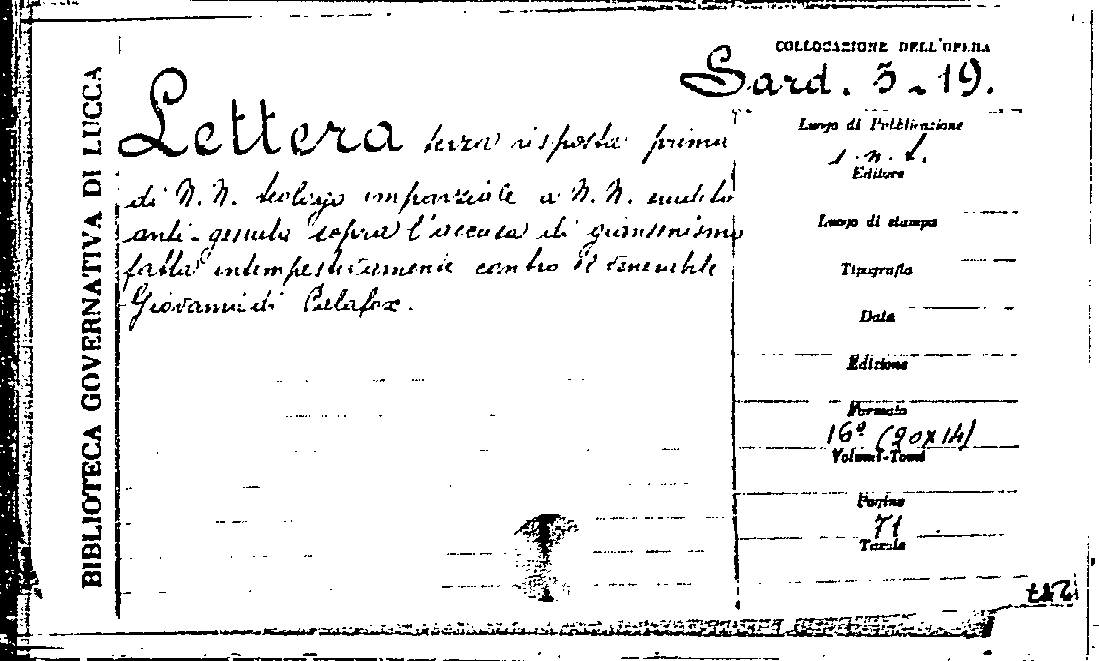 BIBLIOTECA GOVERNATIVA DI LUCCA
COLLOCAZIONE DELL'OPERA
Sard. 3-19.
Lettera risposta prima
di N. N. teologo imparziale a N. N. erudito
anti-gesuita sopra l'accusa di giansenismo
fatta intempestivamente contro il venerabile
Giovanni di Palafox.
Luogo di Pubblicazione
s. n. t.
Editore
Luogo di stampa
Tipografia
Data
Edizione
Formato
16° (20x14)
Volumi-Tomi
Pagine
71
Tavole